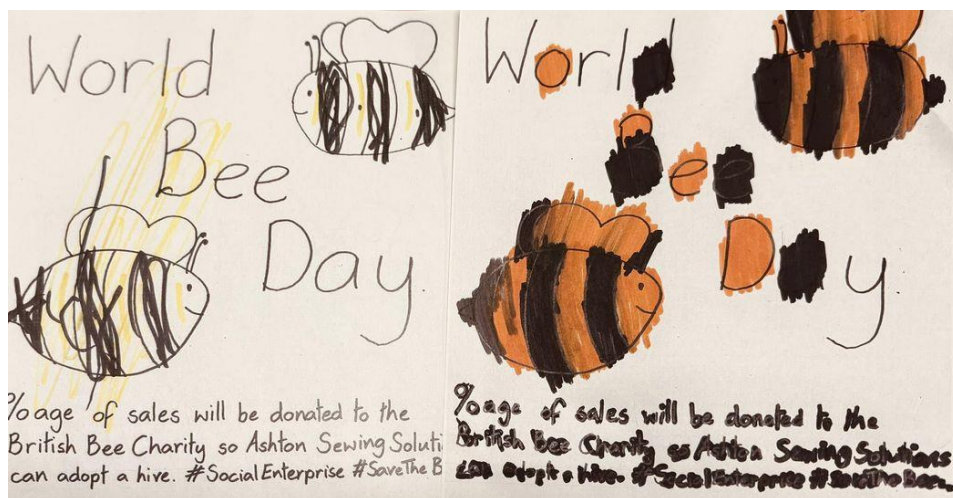 World
Bee
Day
%age of sales will be donated to the
British Bee Charity so Ashton Sewing Soluti
can adopt a hive. #SocialEnterprise #SaveTheB
World
Bee
Day
%age of sales will be donated to the
British Bee Charity so Ashton Sewing Solutions
can adopt a hive. #SocialEnterprise #SaveTheBee